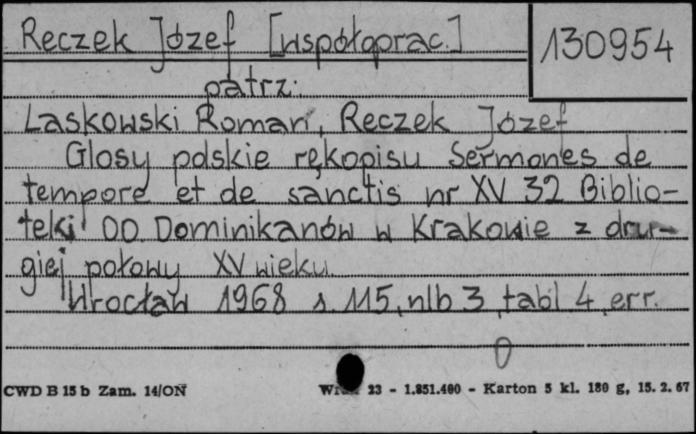 Reczek Józef [współoprac.]
130954
patrz:
Laskowski Roman, Reczek Józef
Glosy polskie rękopisu Sermones de
tempore et de sanctis nr XV 32 Biblio-
teki OO. Dominikanów w Krakowie z dru-
giej połowy XV wieku.
Wrocław 1968 s. 115, nlb 3, tabl 4, err.
CWD B 15 b Zam. 14/ON
23 - 1.851.400 - Karton 5 kl. 180 g, 15. 2. 67